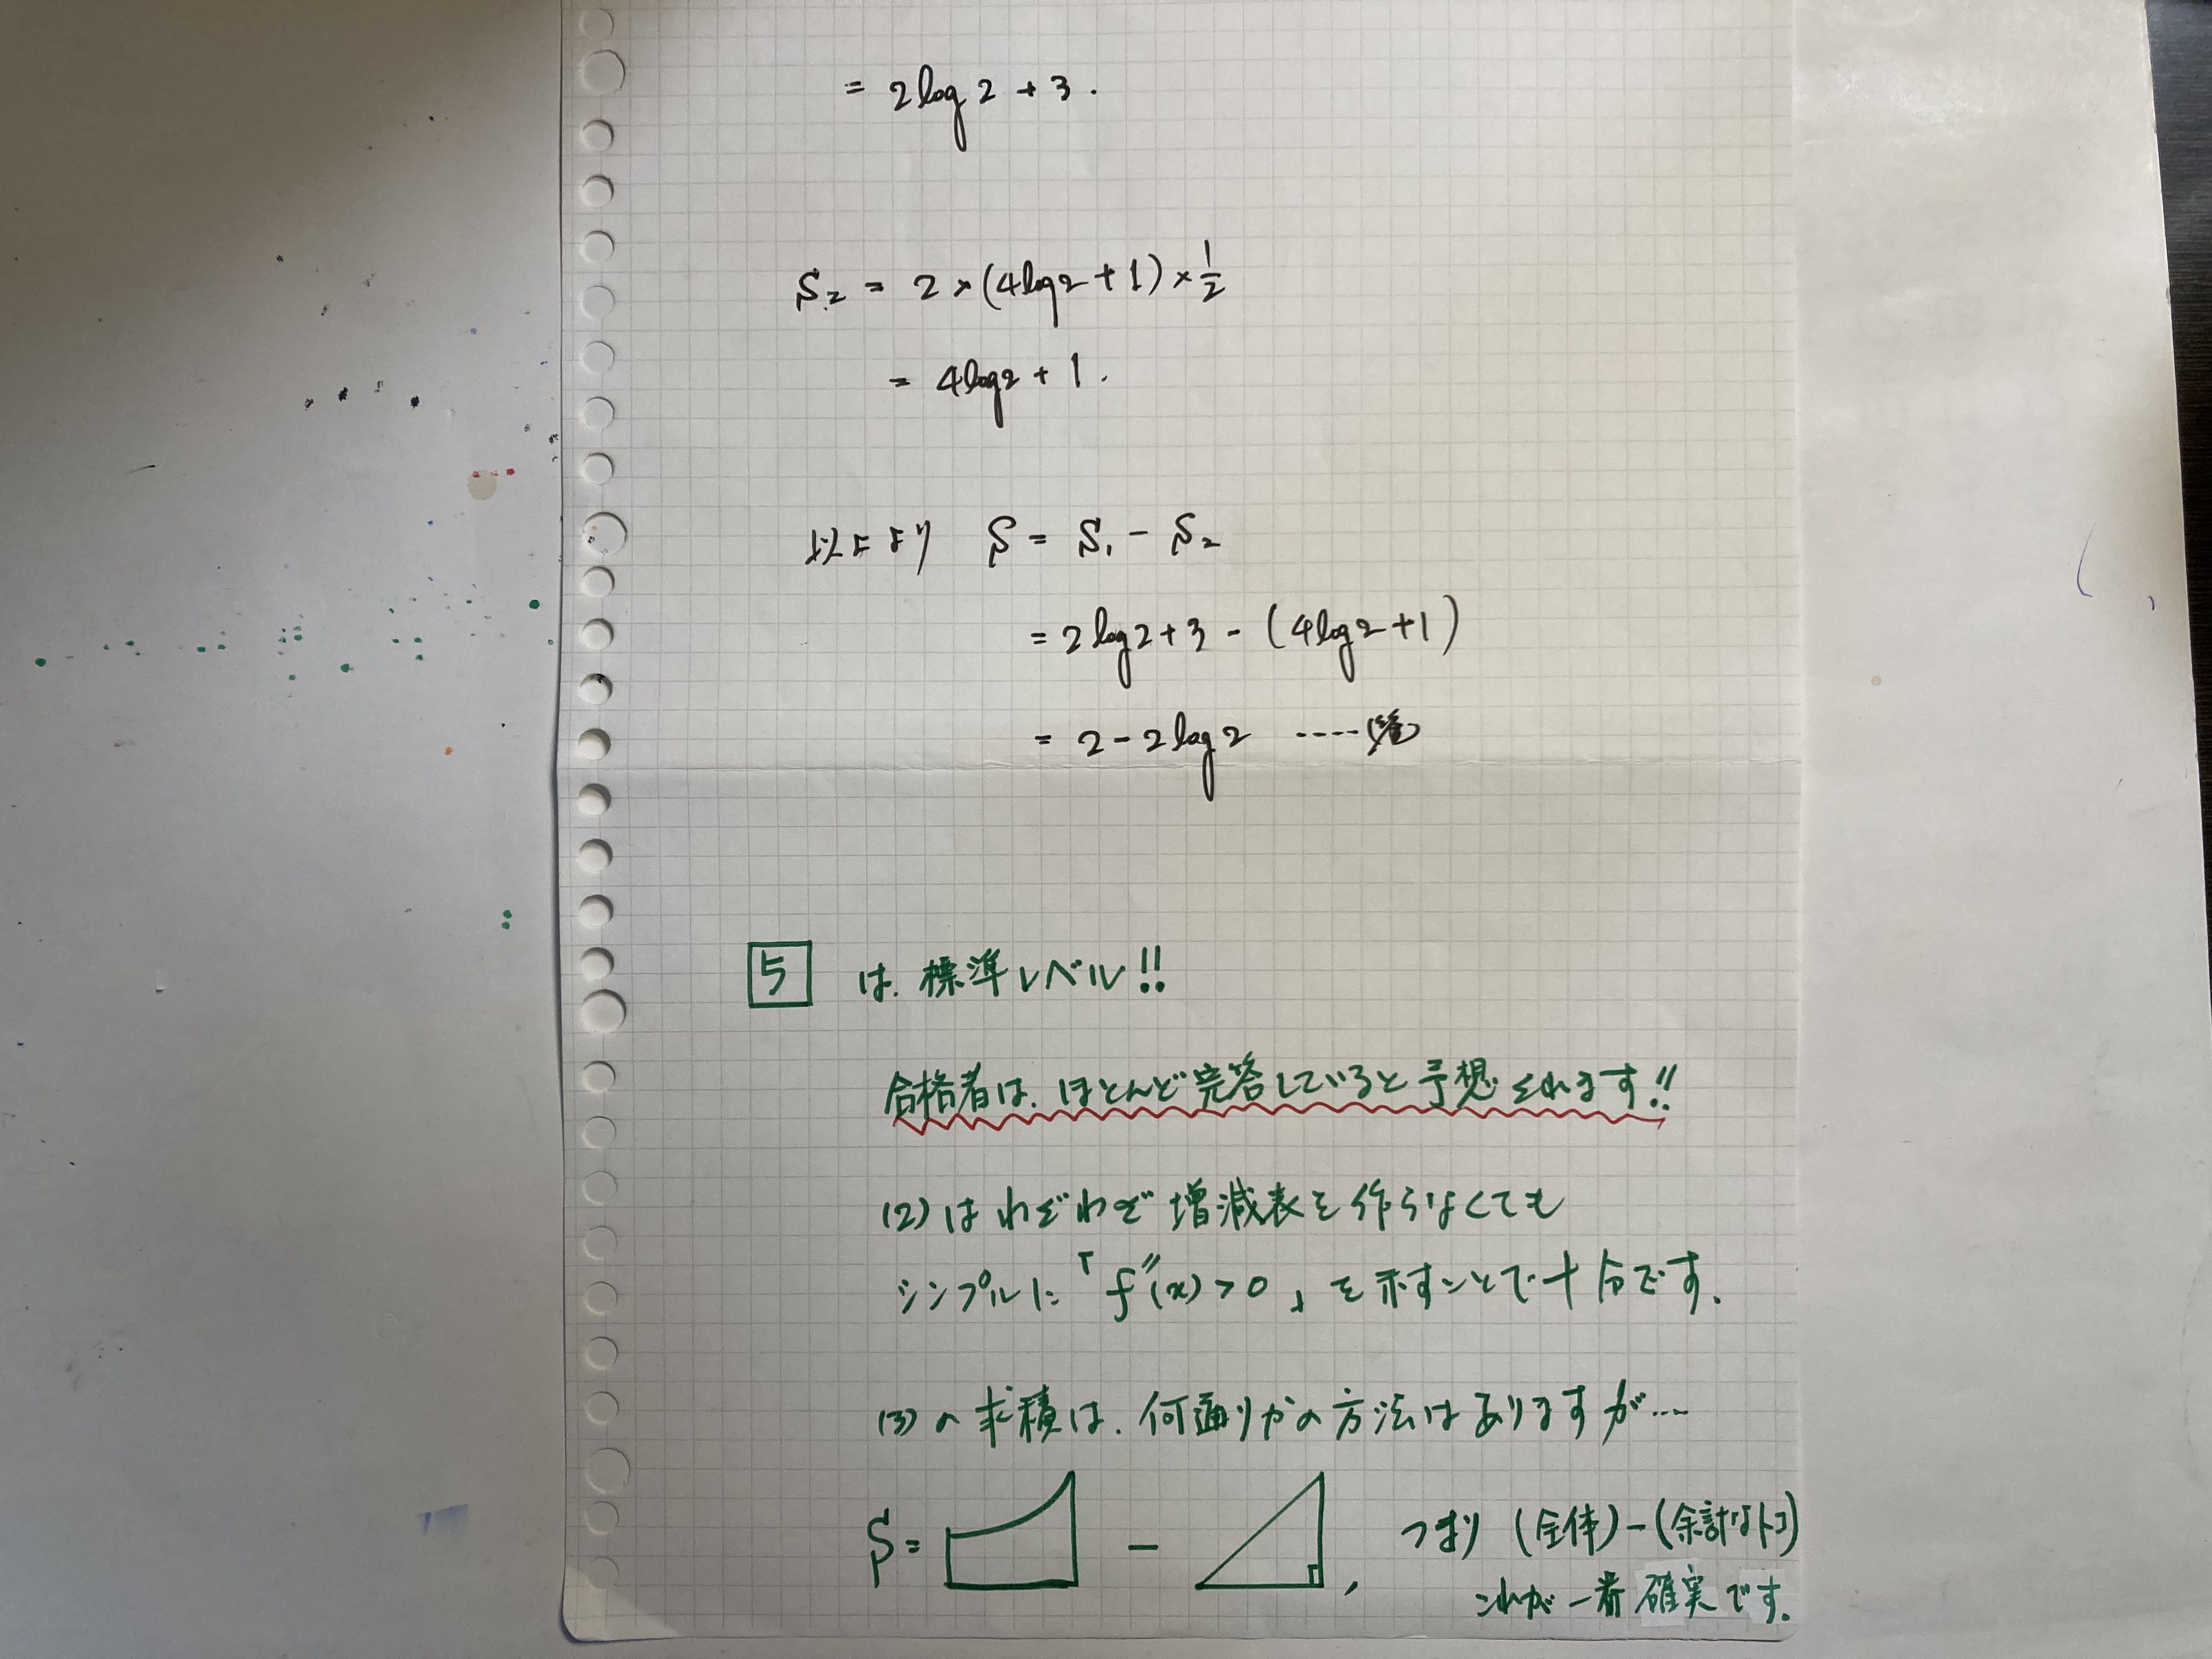 = 2log2 + 3.
S₂ = 2×(4log2+1)×1/2
= 4log2 + 1.
以上より S = S₁ - S₂
= 2log2+3 - (4log2+1)
= 2 - 2log2 ----(答)
5 は、標準レベル!!
合格者は、ほとんど完答していると予想されます!!
(2)はわざわざ増減表を作らなくても
シンプルに「f″(x)>0」を示すことで十分です.
(3)の求積は、何通りかの方法はありますが…
S= - , つまり (全体)-(余計なトコ)
これが一番確実です.